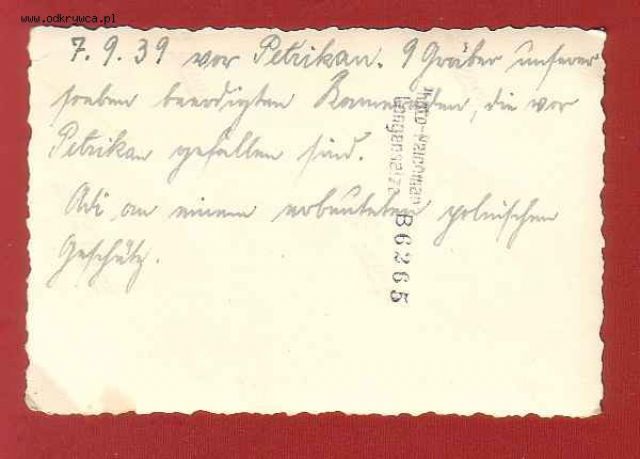 www.odkrywca.pl
7.9.39 vor Petrikau. 9 Gräber unserer
soeben beerdigten Kameraden, die vor
Petrikau gefallen sind.
Adi an einem erbeuteten polnischen
Geschütz.
Langensalza
B6265